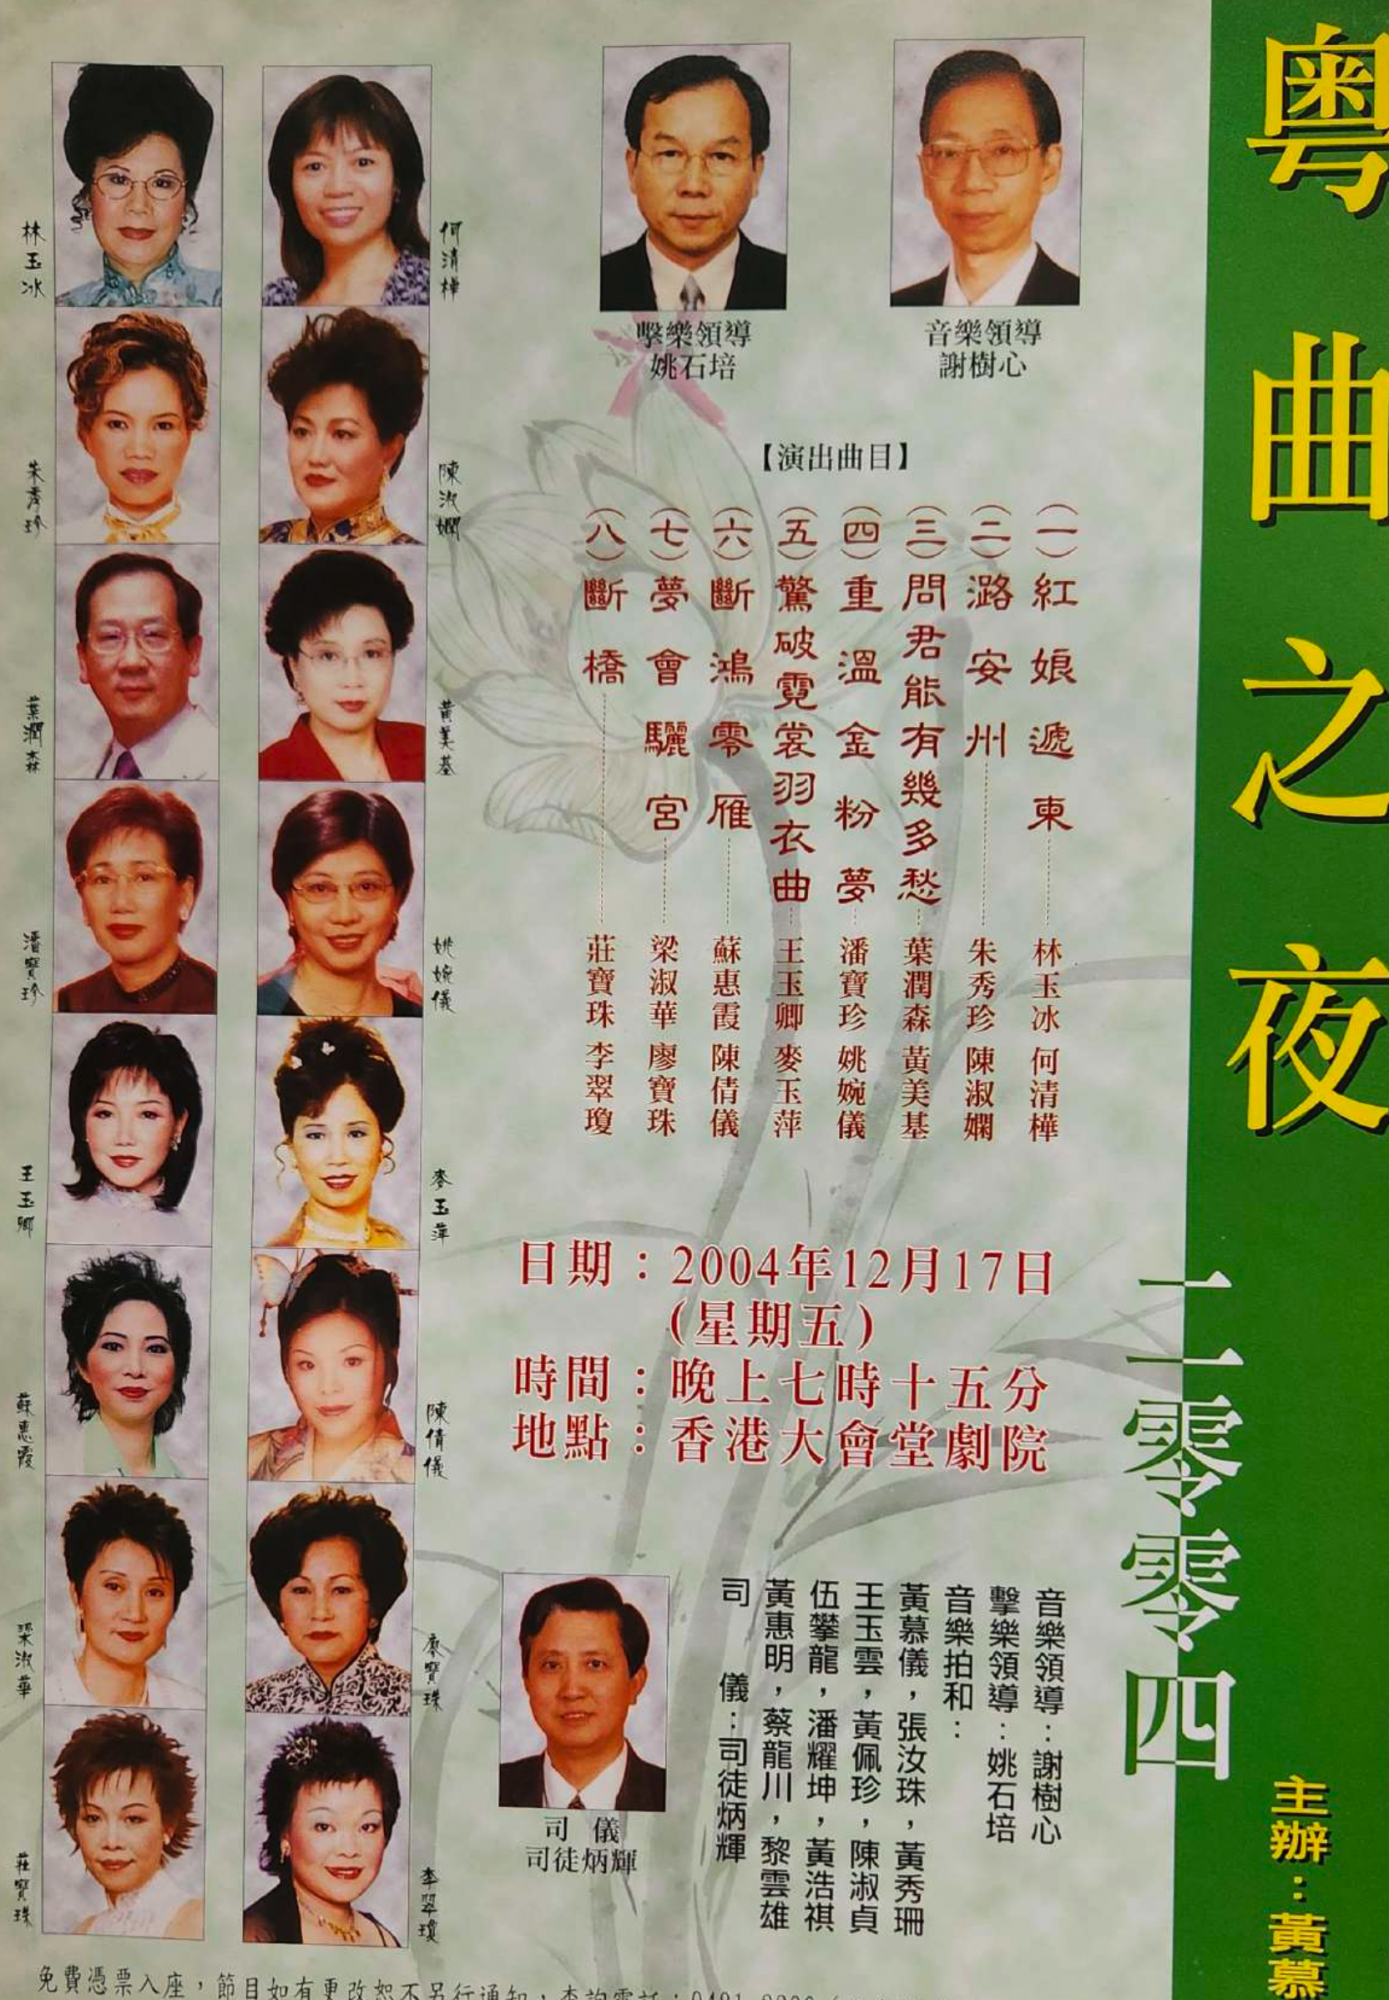 粵曲之夜
二零零四
主辦：黃慕
擊樂領導
姚石培
音樂領導
謝樹心
【演出曲目】
（一）紅娘遞柬 林玉冰 何清樺
（二）潞安州 朱秀珍 陳淑嫻
（三）問君能有幾多愁 葉潤森 黃美基
（四）重溫金粉夢 潘寶珍 姚婉儀
（五）驚破霓裳羽衣曲 王玉卿 麥玉萍
（六）斷鴻零雁 蘇惠霞 陳倩儀
（七）夢會驪宮 梁淑華 廖寶珠
（八）斷橋 莊寶珠 李翠瓊
日期：2004年12月17日
（星期五）
時間：晚上七時十五分
地點：香港大會堂劇院
音樂領導：謝樹心
擊樂領導：姚石培
音樂拍和：
黃慕儀，張汝珠，黃秀珊
王玉雲，黃佩珍，陳淑貞
伍攀龍，潘耀坤，黃浩祺
黃惠明，蔡龍川，黎雲雄
司儀：司徒炳輝
司儀
司徒炳輝
林玉冰
何清樺
朱秀珍
陳淑嫻
葉潤森
黃美基
潘寶珍
姚婉儀
王玉卿
麥玉萍
蘇惠霞
陳倩儀
梁淑華
廖寶珠
莊寶珠
李翠瓊
免費憑票入座，節目如有更改恕不另行通知，查詢電話：